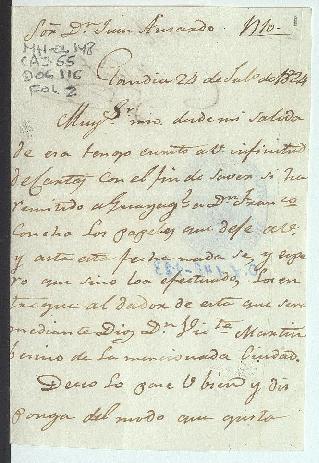 Sor. Dn. Juan
MH-CL 148
CAJ 55
DOC 116
FOL 2
24 de Julo. de 1824
Muy Sr. mio desde mi salida
de esa tengo escrito a V. infinitud
de Cartas con el fin de saver si ha
remitido a Guayaql. a Dn. Franco.
Concha los papeles que dejé a V.
y asta esta fecha nada se, y espe
ro que sino lo a efectuado, los en
tregue al dador de esta que sera
mediante Dios Dn. Martin
vecino de la mencionada Ciudad.
Deceo lo pase V. bien y dis
ponga del modo que gusta